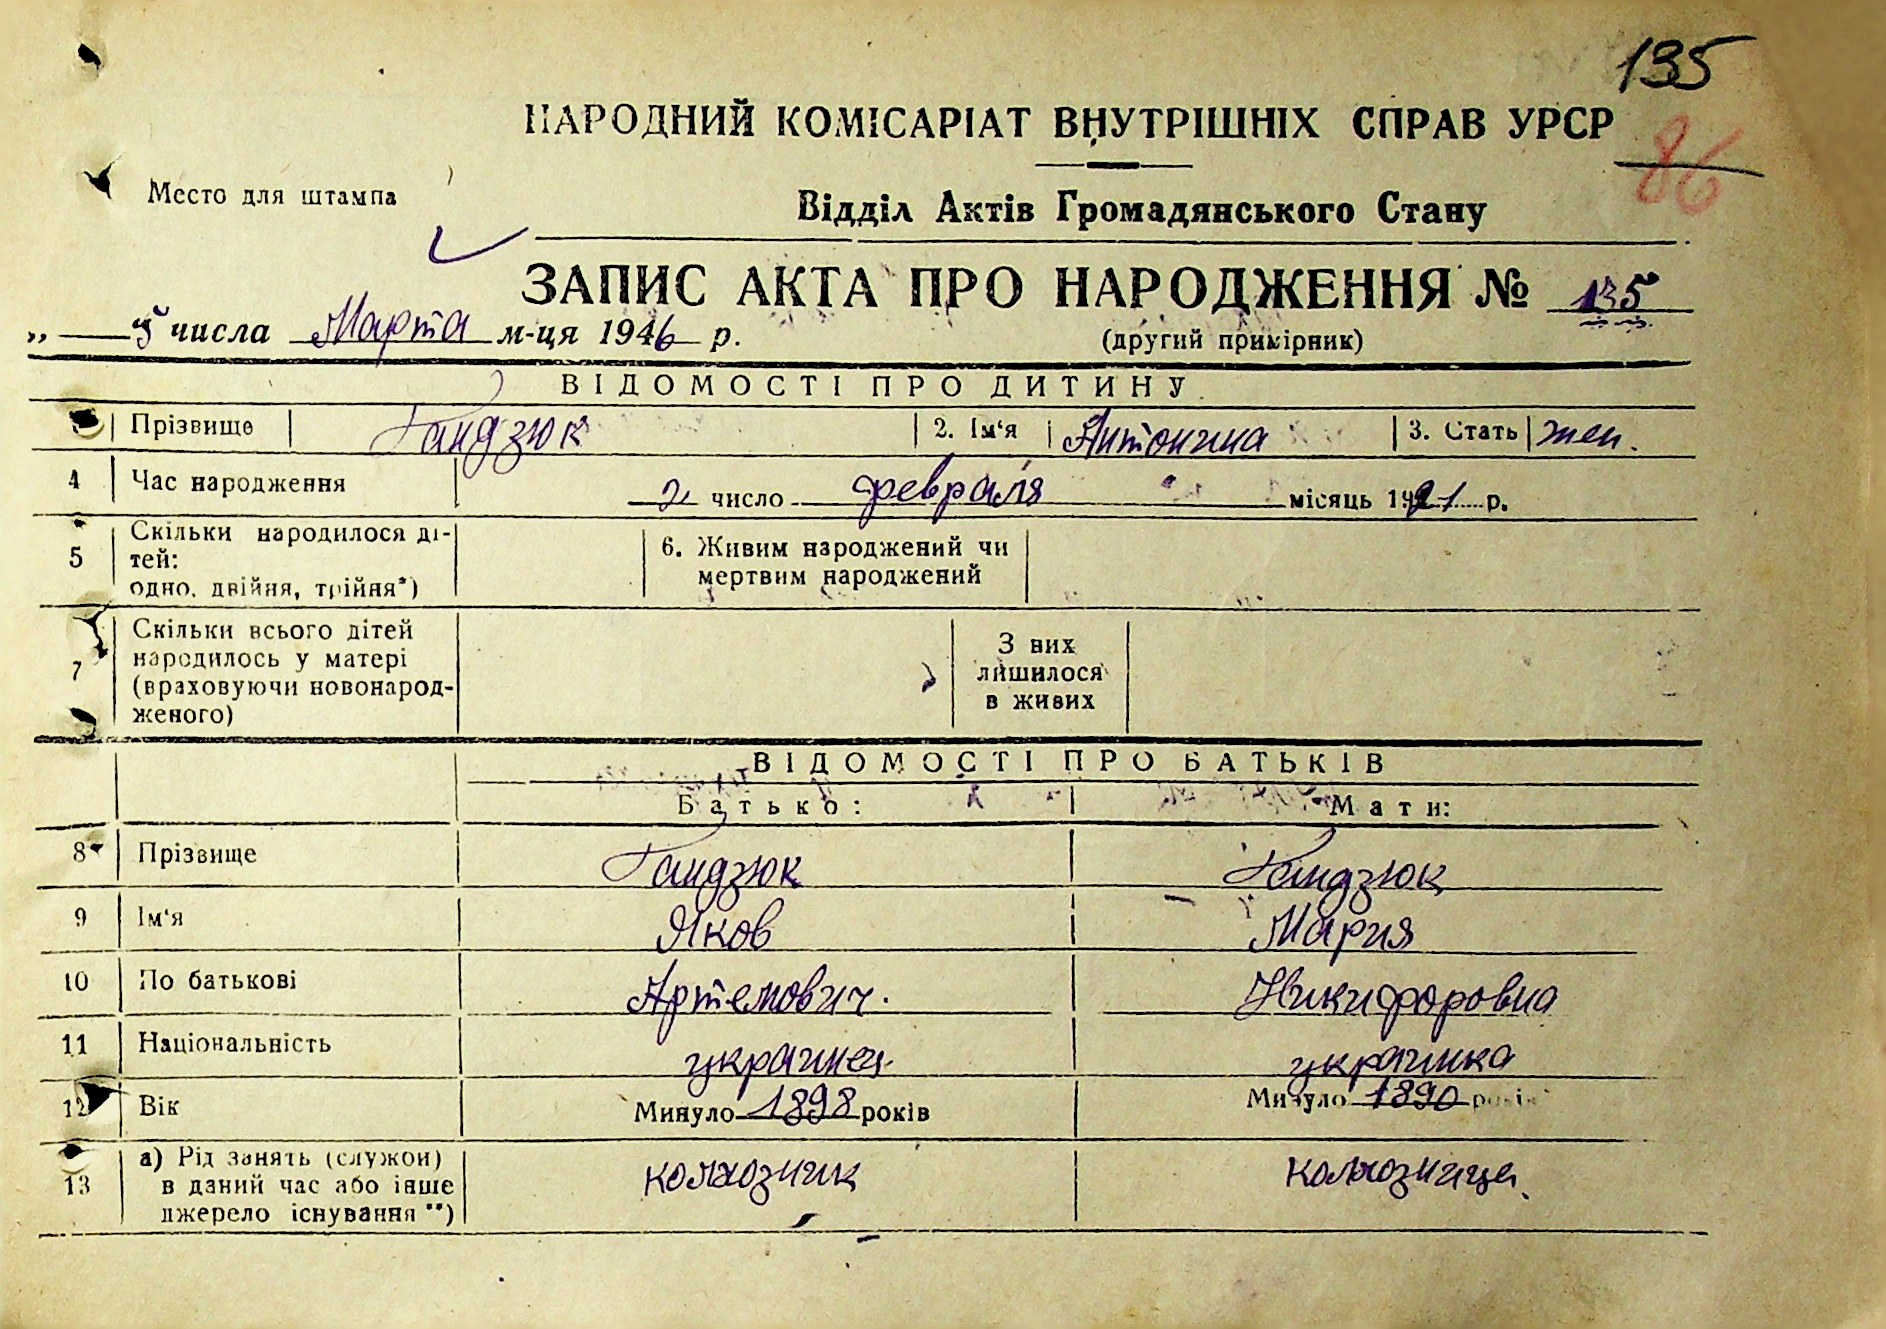 135
НАРОДНИЙ КОМІСАРІАТ ВНУТРІШНІХ СПРАВ УРСР
86
Место для штампа
Відділ Актів Громадянського Стану
ЗАПИС АКТА ПРО НАРОДЖЕННЯ № 135
„ 5 числа Марта м-ця 1946 р.
(другий примірник)
ВІДОМОСТІ ПРО ДИТИНУ
Прізвище Гандзюк 2. Ім‘я Антонина 3. Стать жен.
4 Час народження 2 число февраля місяць 1921 р.
5 Скільки народилося ді-
тей:
одно, двійня, трійня*)
6. Живим народжений чи
мертвим народжений
7 Скільки всього дітей
народилось у матері
(враховуючи новонарод-
женого)
З них
лишилося
в живих
ВІДОМОСТІ ПРО БАТЬКІВ
Батько: Мати:
8 Прізвище Гандзюк Гандзюк
9 Ім‘я Яков Мария
10 По батькові Артемович. Никифоровна
11 Національність украинец украинка
12 Вік Минуло 1898 років Минуло 1890 років
13 а) Рід занять (служби)
в даний час або інше
джерело існування **)
колхозник колхозница